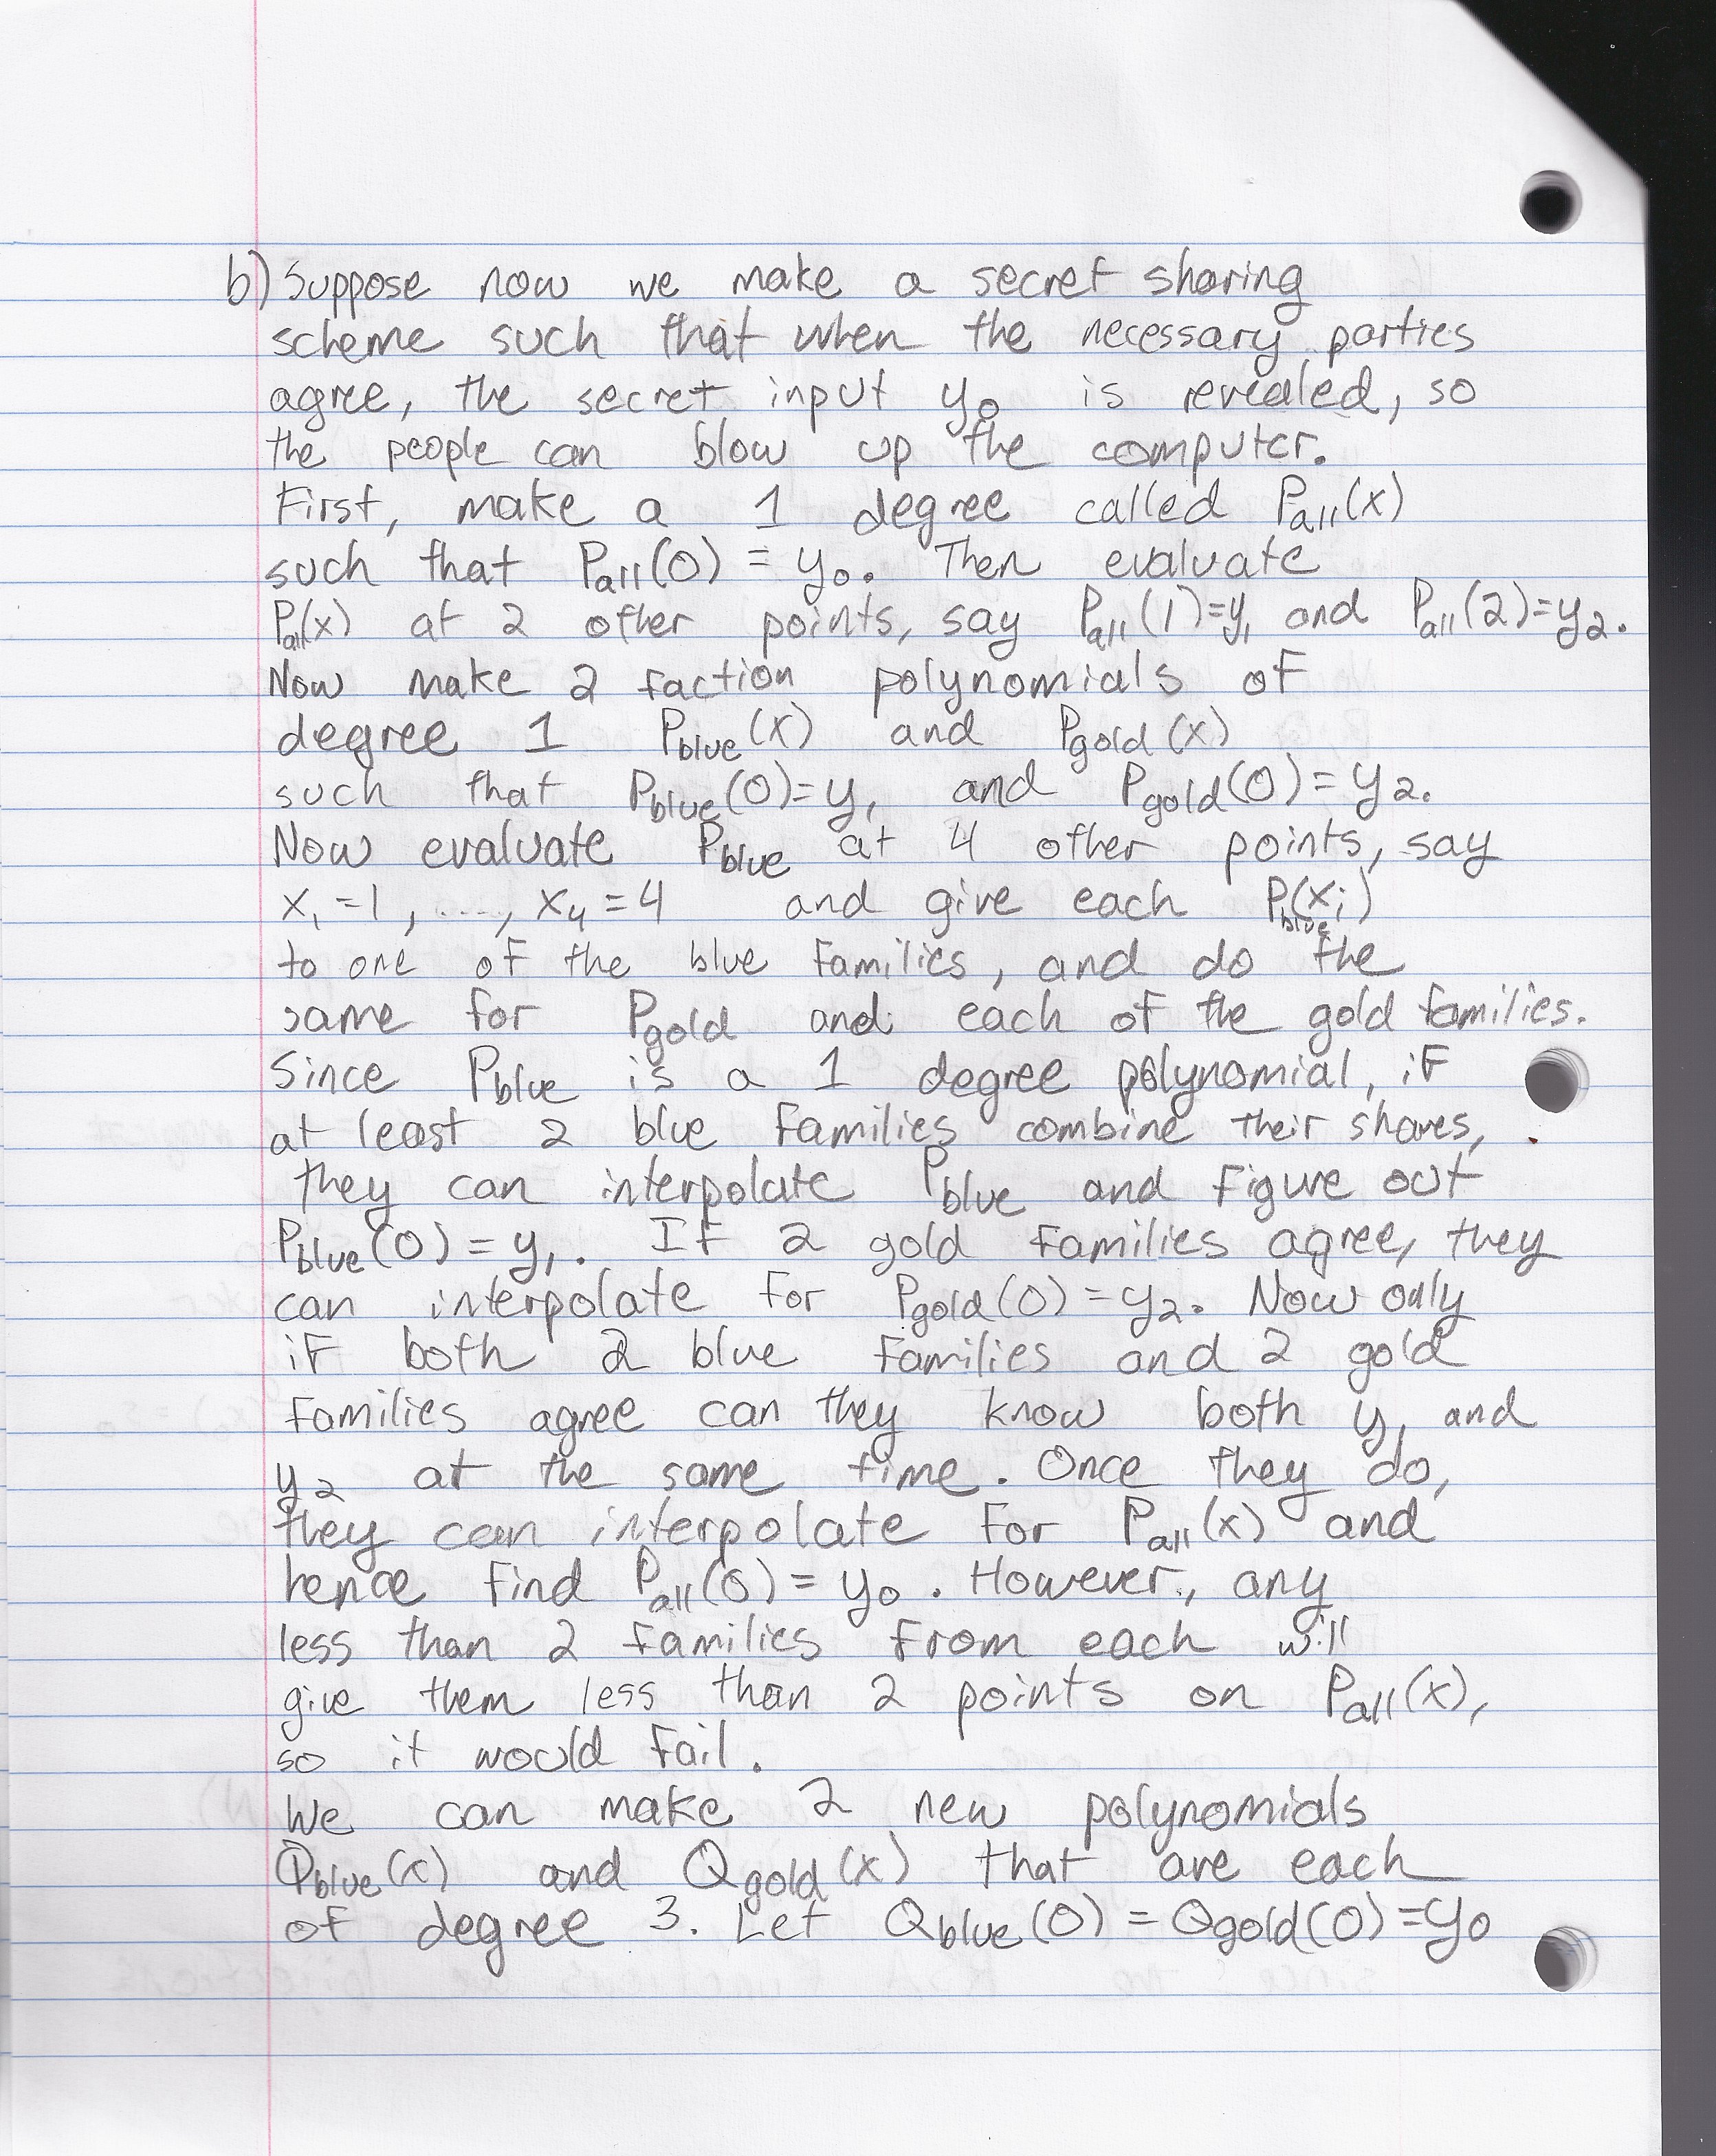 b) Suppose now we make a secret sharing
scheme such that when the necessary parties
agree, the secret input y₀ is revealed, so
the people can blow up the computer.
First, make a 1 degree called P_all(x)
such that P_all(0) = y₀. Then evaluate
P_all(x) at 2 other points, say P_all(1)=y₁ and P_all(2)=y₂.
Now make 2 faction polynomials of
degree 1 P_blue(x) and P_gold(x)
such that P_blue(0)=y₁ and P_gold(0)=y₂.
Now evaluate P_blue at 4 other points, say
x₁=1, ..., x₄=4 and give each P_blue(xᵢ)
to one of the blue families, and do the
same for P_gold and each of the gold families.
Since P_blue is a 1 degree polynomial, if
at least 2 blue families combine their shares,
they can interpolate P_blue and figure out
P_blue(0) = y₁. If 2 gold families agree, they
can interpolate for P_gold(0)=y₂. Now only
if both 2 blue families and 2 gold
families agree can they know both y₁ and
y₂ at the same time. Once they do,
they can interpolate for P_all(x) and
hence find P_all(0) = y₀. However, any
less than 2 families from each will
give them less than 2 points on P_all(x),
so it would fail.
We can make 2 new polynomials
Q_blue(x) and Q_gold(x) that are each
of degree 3. Let Q_blue(0) = Q_gold(0)=y₀